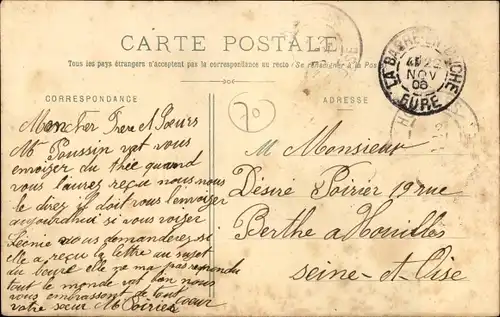 CARTE POSTALE
Tous les pays étrangers n'acceptent pas la correspondance au recto (Se renseigner à la Poste
CORRESPONDANCE
ADRESSE
LA BARRE-EN-OUCHE
22
NOV
06
EURE
70
Mon cher Frere & Sœurs
Mr Poussin vat vous
envoyer du thée quand
vous l'aurez reçu nous nous
le direz il doit vous l'envoyer
aujourdhui si vous voyez
Léonie vous demanderez si
elle a reçu la lettre au sujet
du beure elle ne ma pas repondu
tout le monde vat bon nous
vous embrassont de tout
cœur
votre sœur M Poirier
M Monsieur
Désiré Poirier 19 rue
Berthe a Houilles
Seine-et-Oise